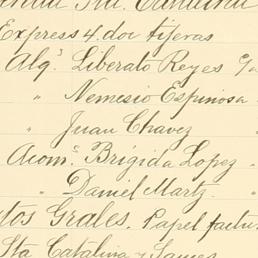 Sta. Catalina
Express 4. doc tijeras
Alqs. Liberato Reyes c/u
" Nemesio Espinosa
" Juan Chavez "
Acoms. Brigida Lopez "
" Daniel Martz. "
tos Grales. Papel factu
Sta Catalina y